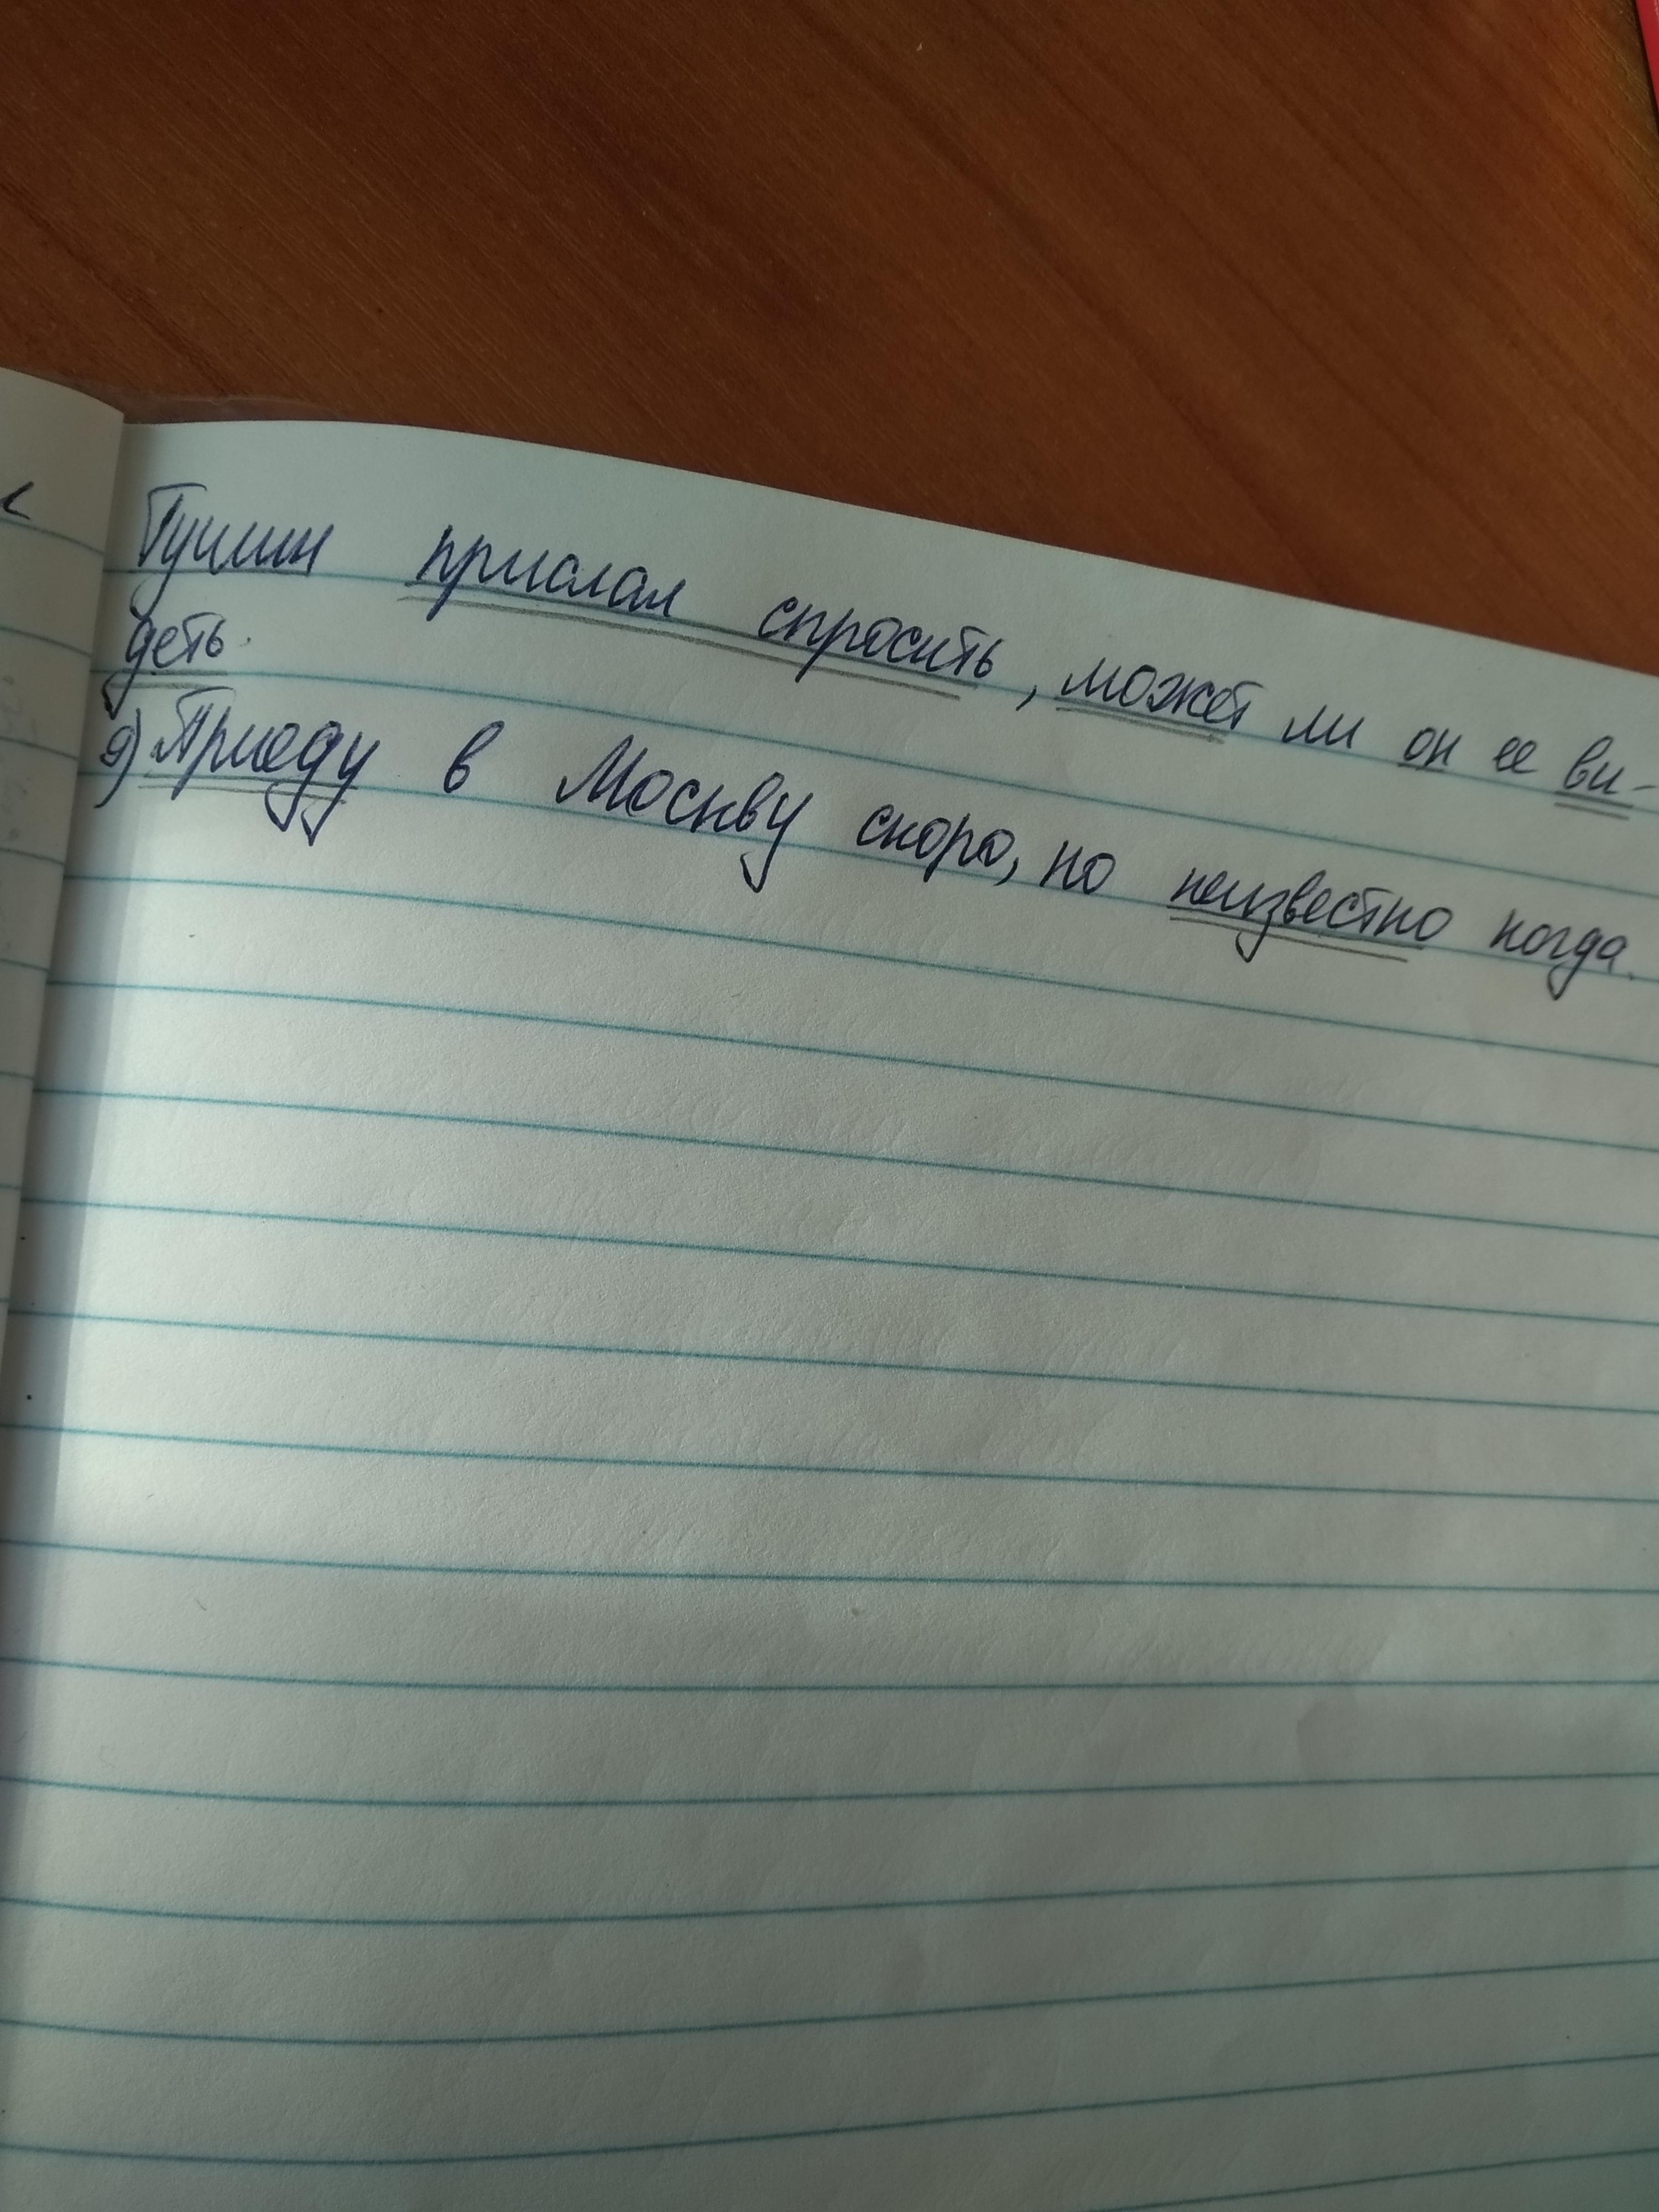 Гушин прислал спросить, может ли он ее ви-
деть.
9) Приеду в Москву скоро, но неизвестно когда.